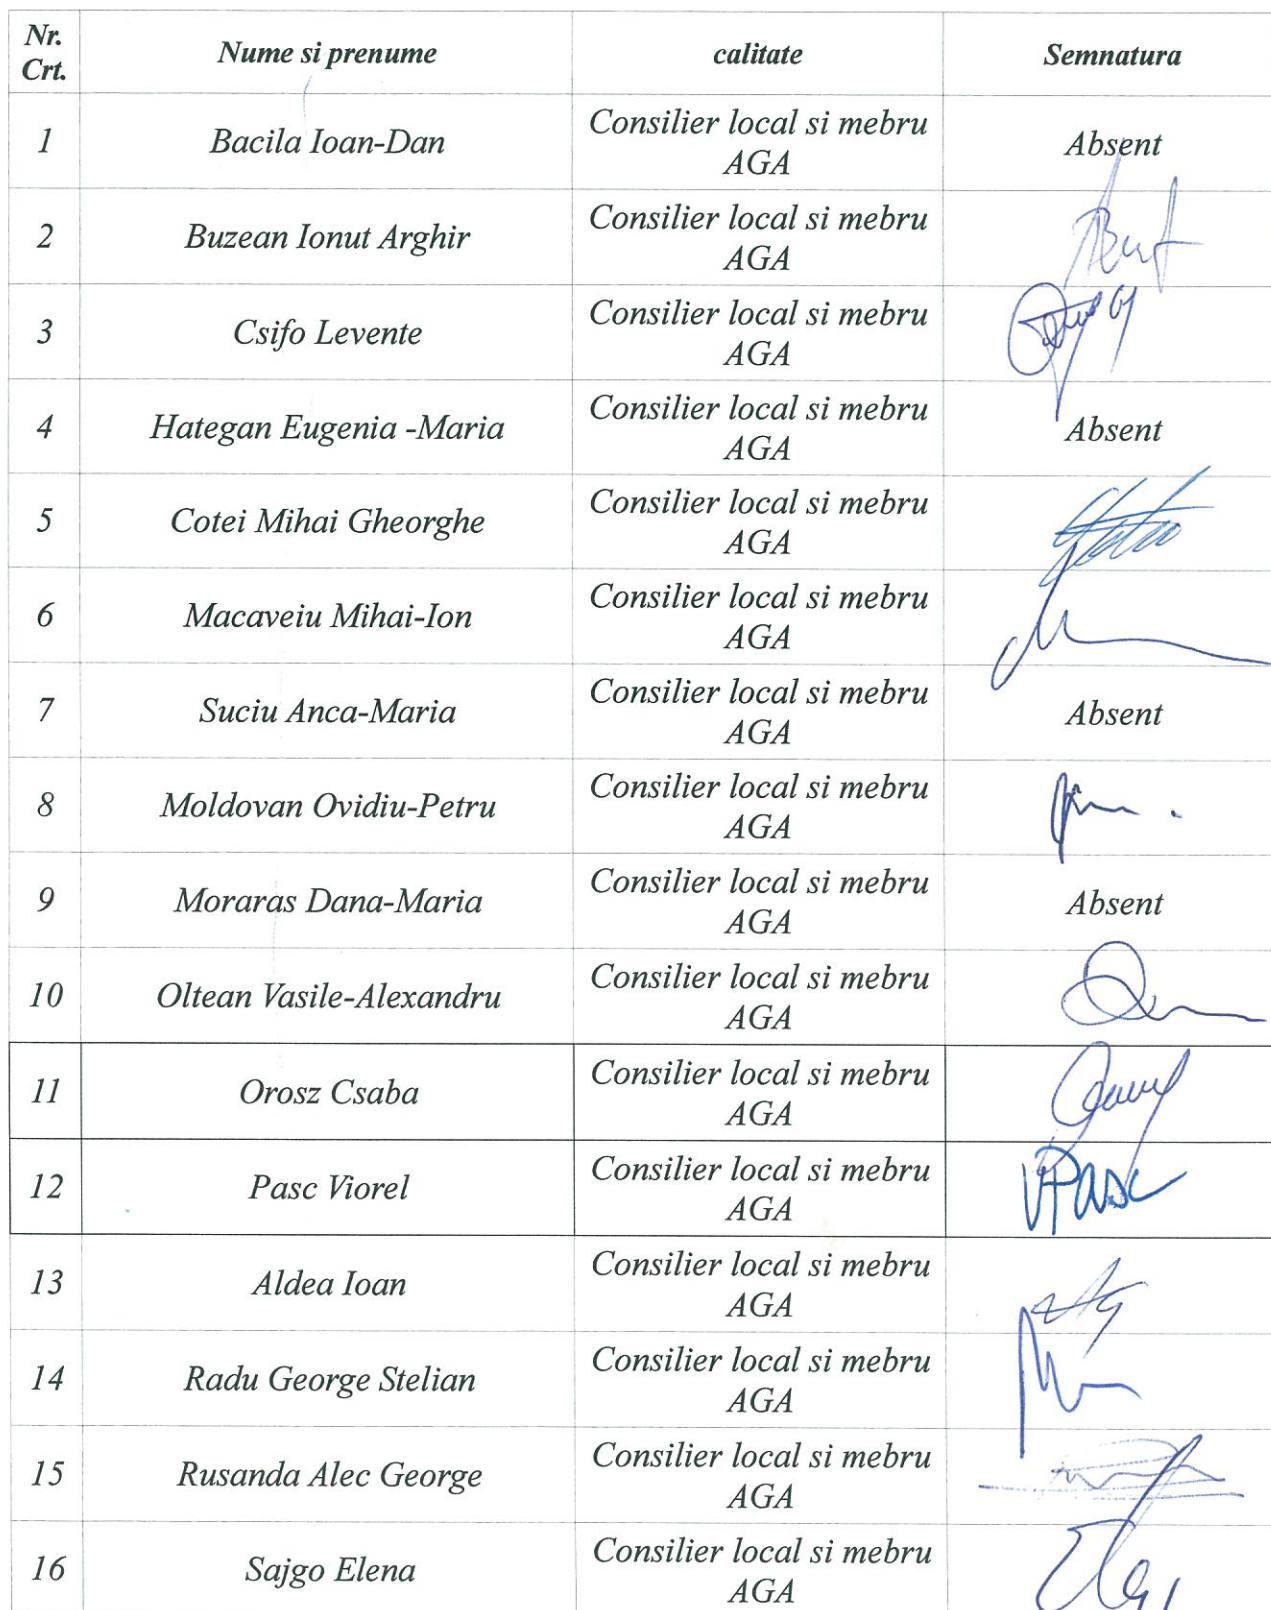 Nr. Crt. Nume si prenume calitate Semnatura
1 Bacila Ioan-Dan Consilier local si mebru AGA Absent
2 Buzean Ionut Arghir Consilier local si mebru AGA
3 Csifo Levente Consilier local si mebru AGA
4 Hategan Eugenia -Maria Consilier local si mebru AGA Absent
5 Cotei Mihai Gheorghe Consilier local si mebru AGA
6 Macaveiu Mihai-Ion Consilier local si mebru AGA
7 Suciu Anca-Maria Consilier local si mebru AGA Absent
8 Moldovan Ovidiu-Petru Consilier local si mebru AGA
9 Moraras Dana-Maria Consilier local si mebru AGA Absent
10 Oltean Vasile-Alexandru Consilier local si mebru AGA
11 Orosz Csaba Consilier local si mebru AGA
12 Pasc Viorel Consilier local si mebru AGA VPasc
13 Aldea Ioan Consilier local si mebru AGA
14 Radu George Stelian Consilier local si mebru AGA
15 Rusanda Alec George Consilier local si mebru AGA
16 Sajgo Elena Consilier local si mebru AGA